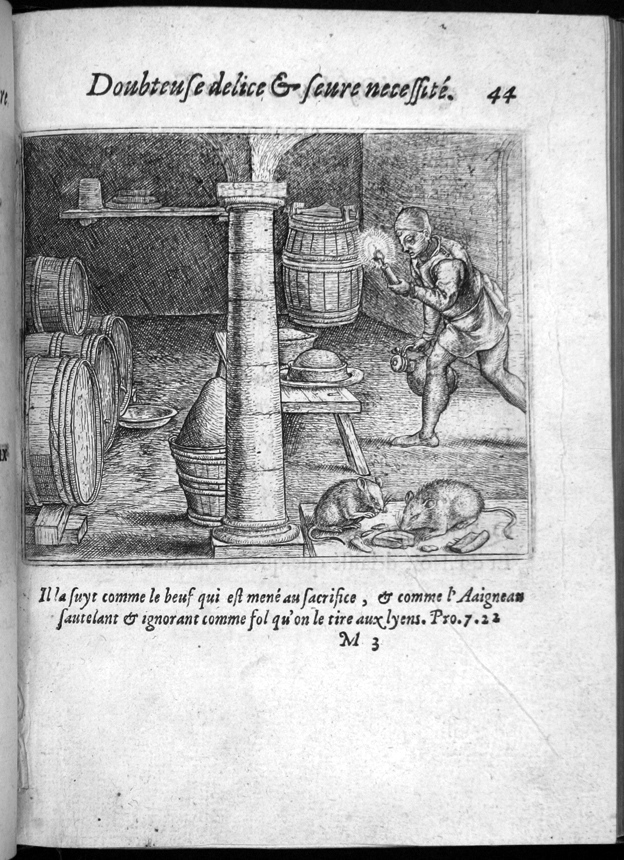 Doubteuſe delice & ſeure neceſſité. 44
Il la ſuyt comme le beuf qui eſt mené au ſacrifice, & comme l'Aaigneau
ſautelant & ignorant comme fol qu'on le tire aux lyens. Pro. 7. 22
M 3